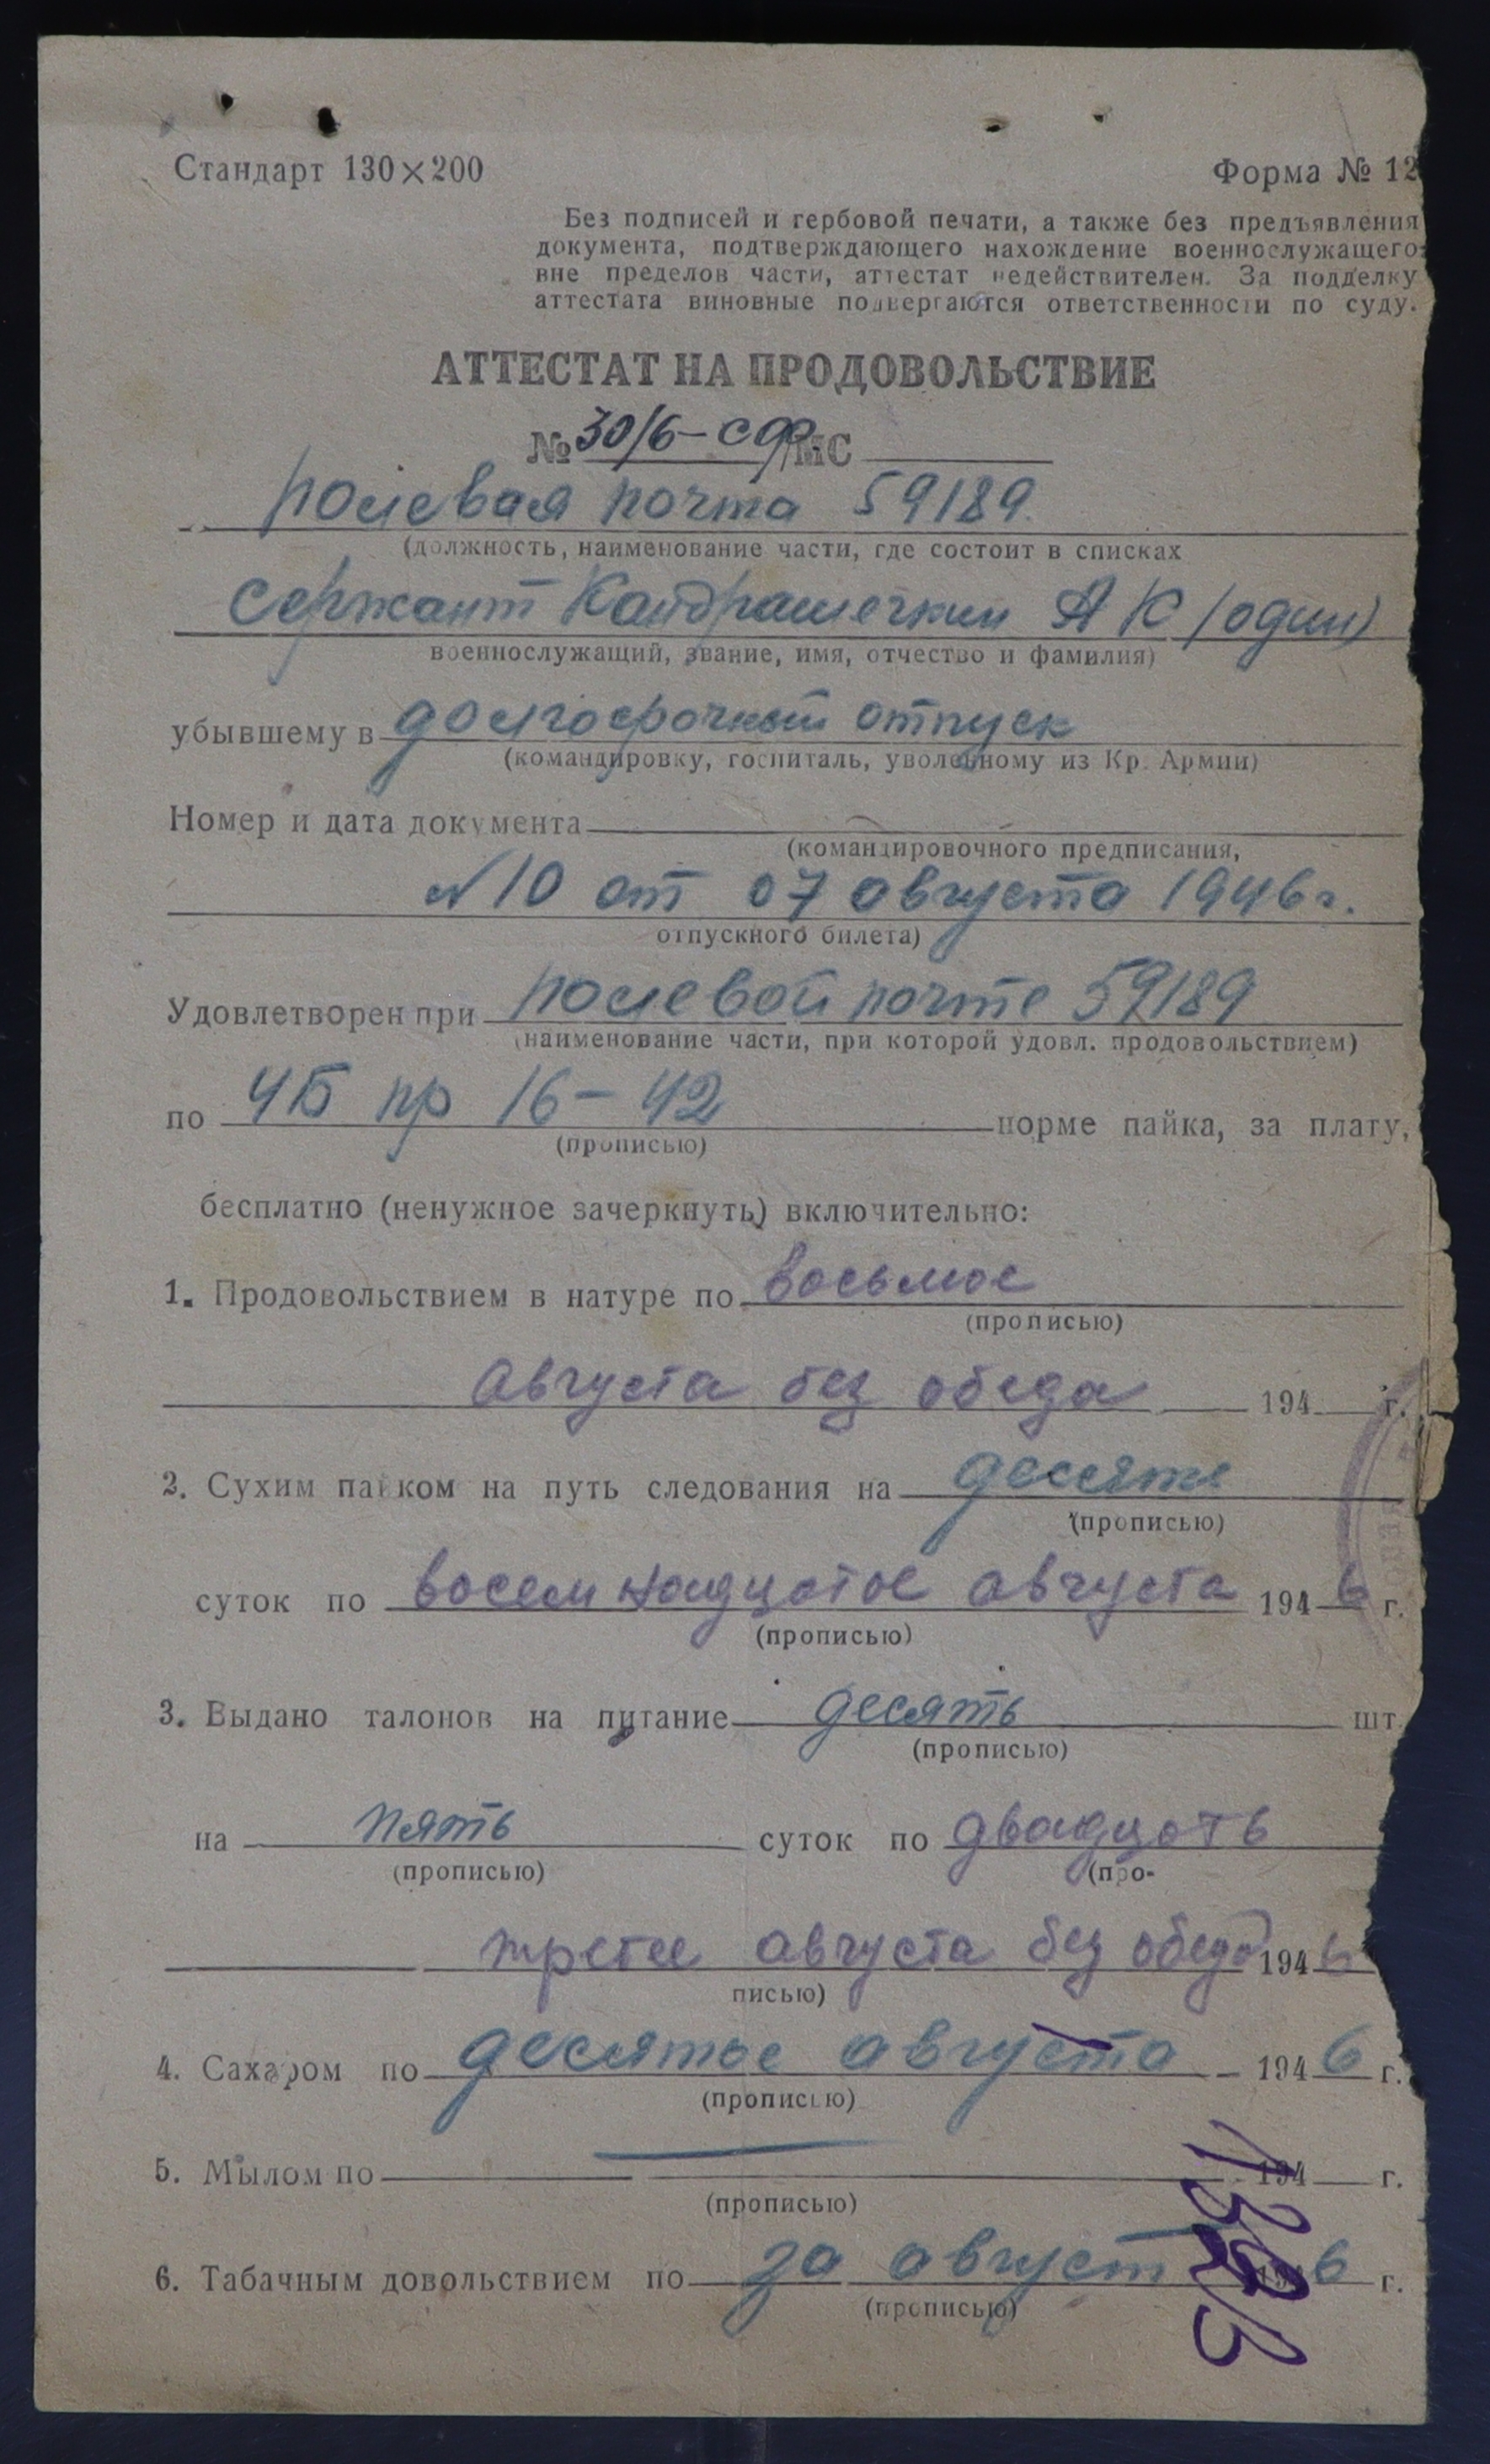 Стандарт 130×200
Форма № 12
Без подписей и гербовой печати, а также без предъявления
документа, подтверждающего нахождение военнослужащего
вне пределов части, аттестат недействителен. За подделку
аттестата виновные подвергаются ответственности по суду.
АТТЕСТАТ НА ПРОДОВОЛЬСТВИЕ
№ 30/6-сф/МС
полевая почта 59189
(должность, наименование части, где состоит в списках
Сержант Кандрашечкин А К (один)
военнослужащий, звание, имя, отчество и фамилия)
убывшему в долгосрочный отпуск
(командировку, госпиталь, уволенному из Кр. Армии)
Номер и дата документа
(командировочного предписания,
№ 10 от 07 августа 1946 г.
отпускного билета)
Удовлетворен при полевой почте 59189
(наименование части, при которой удовл. продовольствием)
по ЧБ пр 16-42 норме пайка, за плату,
(прописью)
бесплатно (ненужное зачеркнуть) включительно:
1. Продовольствием в натуре по восьмое
(прописью)
августа без обеда 194 г.
2. Сухим пайком на путь следования на десять
(прописью)
суток по восемнадцатое августа 1946 г.
(прописью)
3. Выдано талонов на питание десять шт.
(прописью)
на пять суток по двадцать
(прописью) (про-
третье августа без обеда 1946
писью)
4. Сахаром по десятое августа 1946 г.
(прописью)
5. Мылом по — 194 г.
(прописью)
6. Табачным довольствием по за август 1946 г.
(прописью)